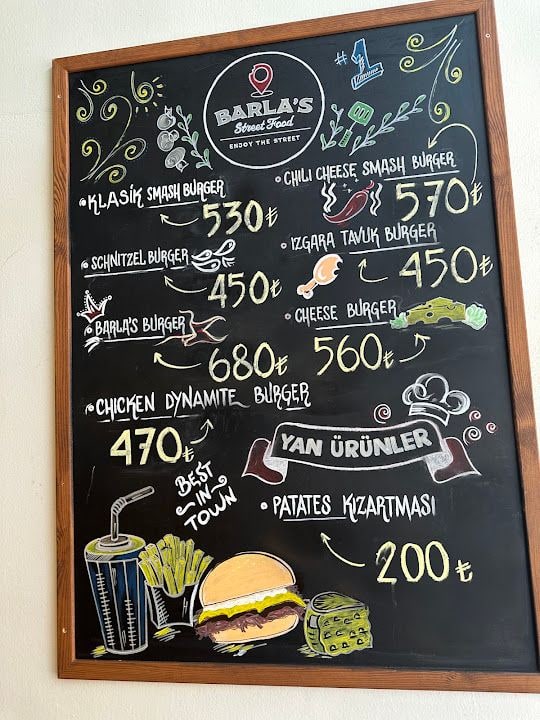 BARLA'S
Street Food
ENJOY THE STREET
#1
KLASİK SMASH BURGER
530₺
SCHNITZEL BURGER
450₺
BARLA'S BURGER
680₺
CHICKEN DYNAMITE BURGER
470₺
CHILI CHEESE SMASH BURGER
570₺
IZGARA TAVUK BURGER
450₺
CHEESE BURGER
560₺
YAN ÜRÜNLER
PATATES KIZARTMASI
200₺
BEST
IN
TOWN